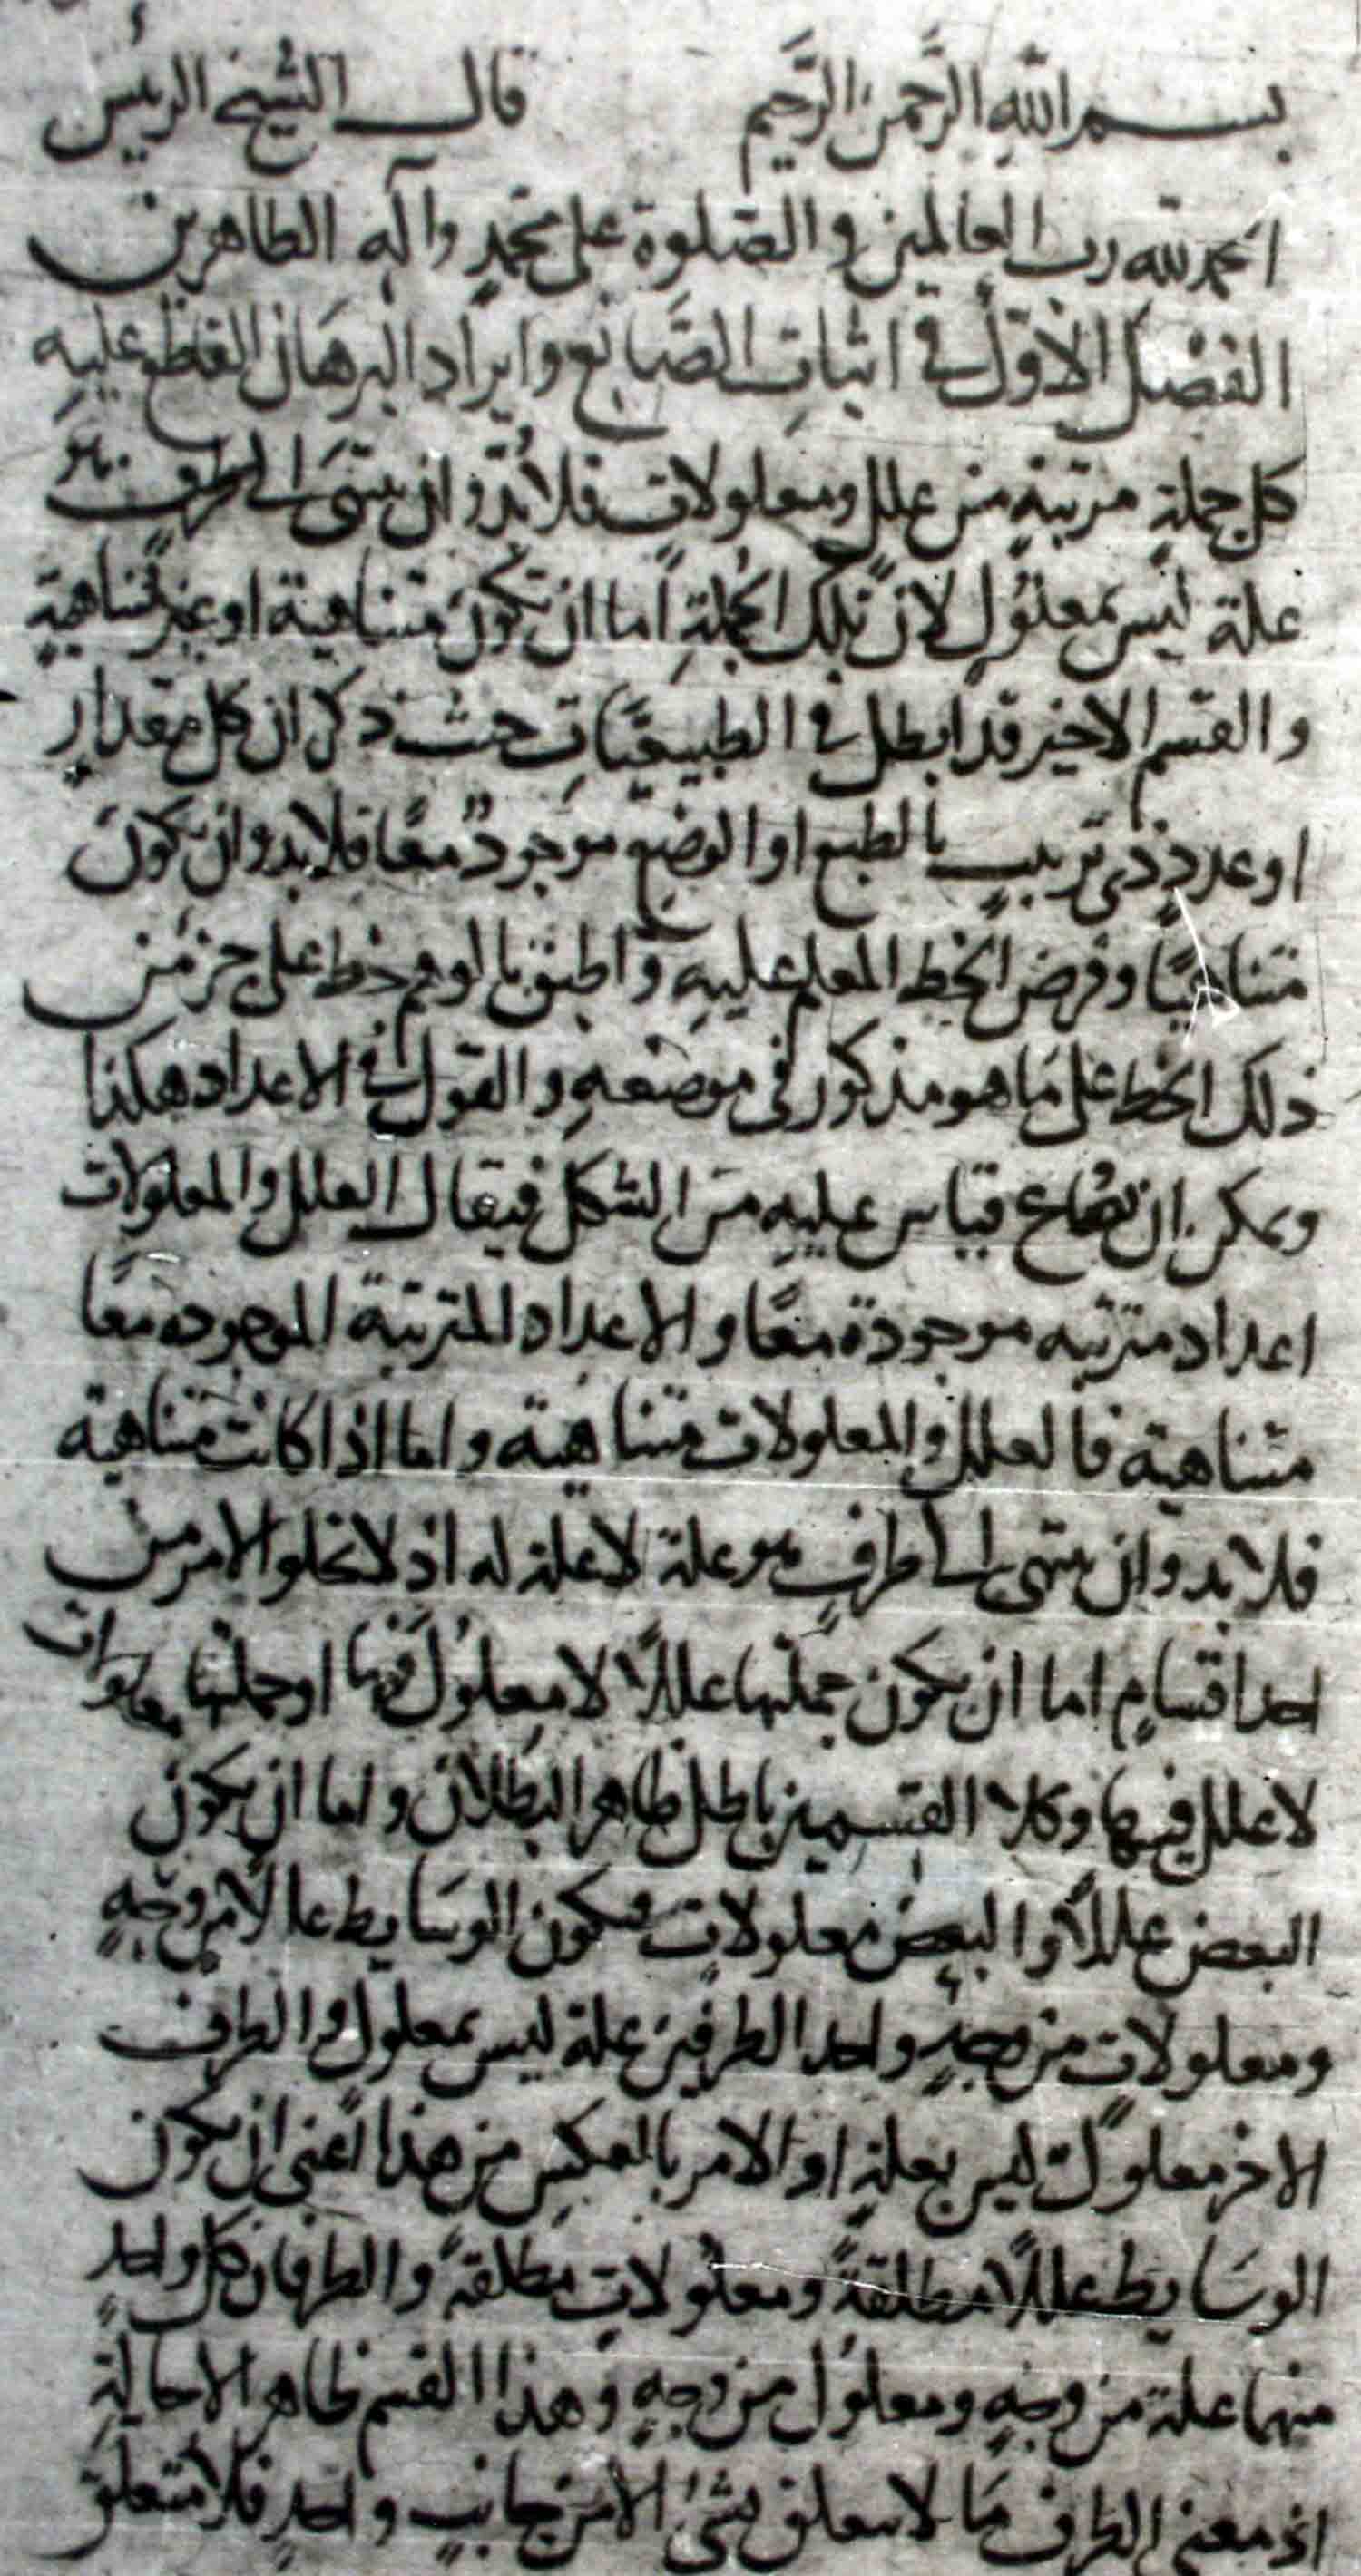 بسم الله الرَّحمن الرَّحيم قال الشيخ الرئيس
الحمد لله رب العالمين والصّلوة على محمدٍ وآله الطاهرين
الفصل الأوّل في اثبات الصَّانع وايراد البرهان القطع عليه
كل جملةٍ مرتبةٍ من علل ومعلولاتٍ فلا بُدّ وان ينتهىَ الى طرفٍ هو
علة ليس بمعلولٍ لانّ تلك الجملةِ اما ان تكون متناهية او غير متناهيةٍ
والقسم الاخير قد ابطل في الطبيعيَّاتِ حيث ذكر ان كل مقدارٍ
او عددٍ ذى ترتيبٍ بالطبع او الوضع موجودٌ معًا فلا بد وان يكون
متناهيًا وفرض الخط المعلم عليهِ واطبق بالوهم خط على جزء من
ذلك الخط على ما هو مذكور فى موضعهِ والقول في الاعداد هكذا
ويمكن ان يُصاغ قياس عليهِ من الشكل فيقال العلل والمعلولات
اعداد مترتبه موجودة معًا والاعداد المترتبة الموجوده معًا
متناهية فالعلل والمعلولات متناهية واما اذا كانت متناهية
فلا بد وان ينتهى الى طرفٍ هو علة لا علة له اذ لا يخلو الامر من
احد اقسامٍ اما ان يكون جملتها عللًا لا معلولَ فيها او جملتها معلولات
لا علل فيها وكلا القسمين باطل ظاهر البطلان واما ان يكون
البعض عللًا والبعض معلولاتٍ فيكون الوسايط عللا من وجهٍ
ومعلولاتٍ من وجهٍ واحد الطرفين علة ليس بمعلول والطرف
الاخر معلولٌ ليس بعلةٍ او الامر بالعكسِ من هذا اعنى ان يكون
الوسايط عللًا مطلقةً ومعلولاتٍ مطلقةً والطرفان كل واحدٍ
منهما علة من وجهٍ ومعلول من وجهٍ وهذا القسم ظاهر الاحالةِ
اذ معنى الطرف ما لا يتعلق بشئ الا من جانبٍ واحدٍ فلا متعلق